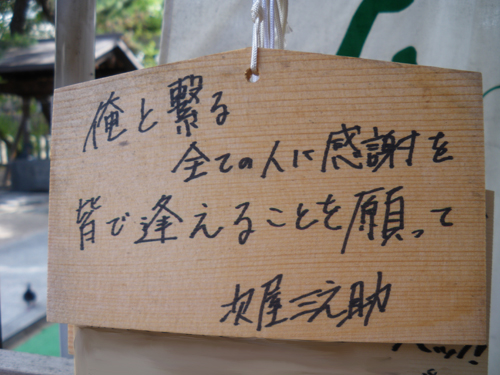 俺と繋る
全ての人に感謝を
皆で逢えることを願って
次屋三之助